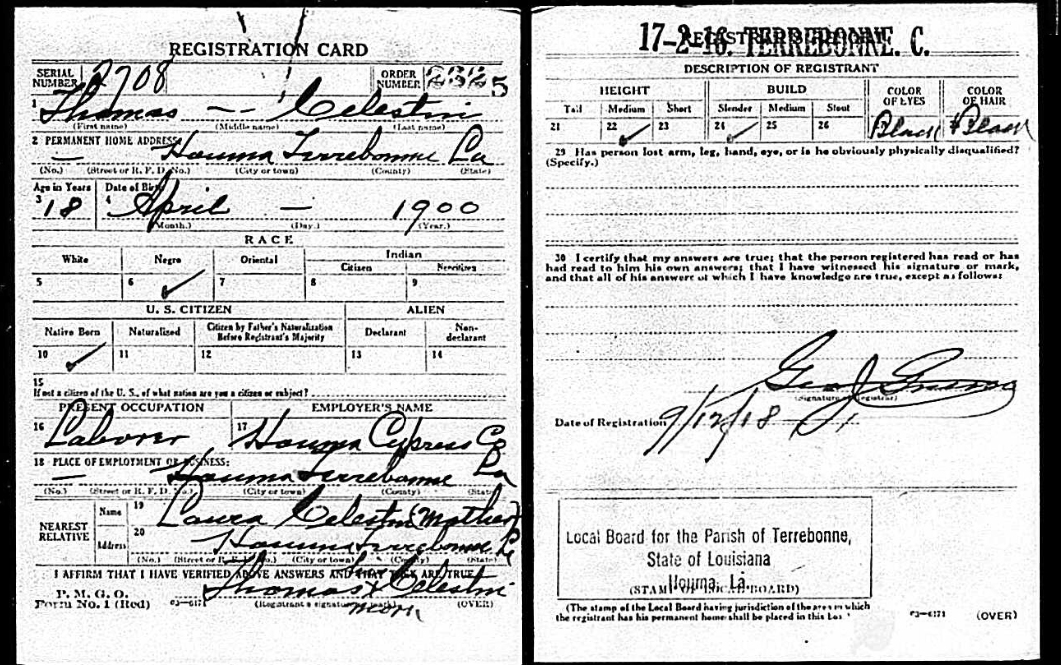 REGISTRATION CARD
SERIAL NUMBER 2708 ORDER NUMBER
1 Thomas — — Celestin
(First name) (Middle name) (Last name)
2 PERMANENT HOME ADDRESS:
— Houma Terrebonne La
(No.) (Street or R. F. D. No.) (City or town) (County) (State)
Age in Years Date of Birth
3 18 4 April — 1900
(Month.) (Day.) (Year.)
RACE
White Negro Oriental Indian
Citizen Noncitizen
5 6 ✓ 7 8 9
U. S. CITIZEN ALIEN
Native Born Naturalized Citizen by Father's Naturalization Before Registrant's Majority Declarant Non-declarant
10 ✓ 11 12 13 14
15
If not a citizen of the U. S., of what nation are you a citizen or subject?
PRESENT OCCUPATION EMPLOYER'S NAME
16 Laborer 17 Houma Cypress Co
18 PLACE OF EMPLOYMENT OR BUSINESS:
— Houma Terrebonne La
(No.) (Street or R. F. D. No.) (City or town) (County) (State)
NEAREST RELATIVE
Name 19 Laura Celestin (Mother)
Address 20 Houma Terrebonne La
(No.) (Street or R. F. D. No.) (City or town) (County) (State)
I AFFIRM THAT I HAVE VERIFIED ABOVE ANSWERS AND THAT THEY ARE TRUE
P. M. G. O.
Form No. 1 (Red) 03—6171 Thomas x Celestin
(Registrant's signature or mark) (OVER)
17-2-16. TERREBONNE. C.
DESCRIPTION OF REGISTRANT
HEIGHT BUILD COLOR OF EYES COLOR OF HAIR
Tall Medium Short Slender Medium Stout
21 22 ✓ 23 24 ✓ 25 26 Black Black
29 Has person lost arm, leg, hand, eye, or is he obviously physically disqualified?
(Specify.)
30 I certify that my answers are true; that the person registered has read or has
had read to him his own answers; that I have witnessed his signature or mark,
and that all of his answers of which I have knowledge are true, except as follows:
(Signature of Registrar)
Date of Registration 9/12/18
Local Board for the Parish of Terrebonne,
State of Louisiana
Houma, La.
(STAMP OF LOCAL BOARD)
(The stamp of the Local Board having jurisdiction of the area in which
the registrant has his permanent home shall be placed in this box.)
03—6171 (OVER)